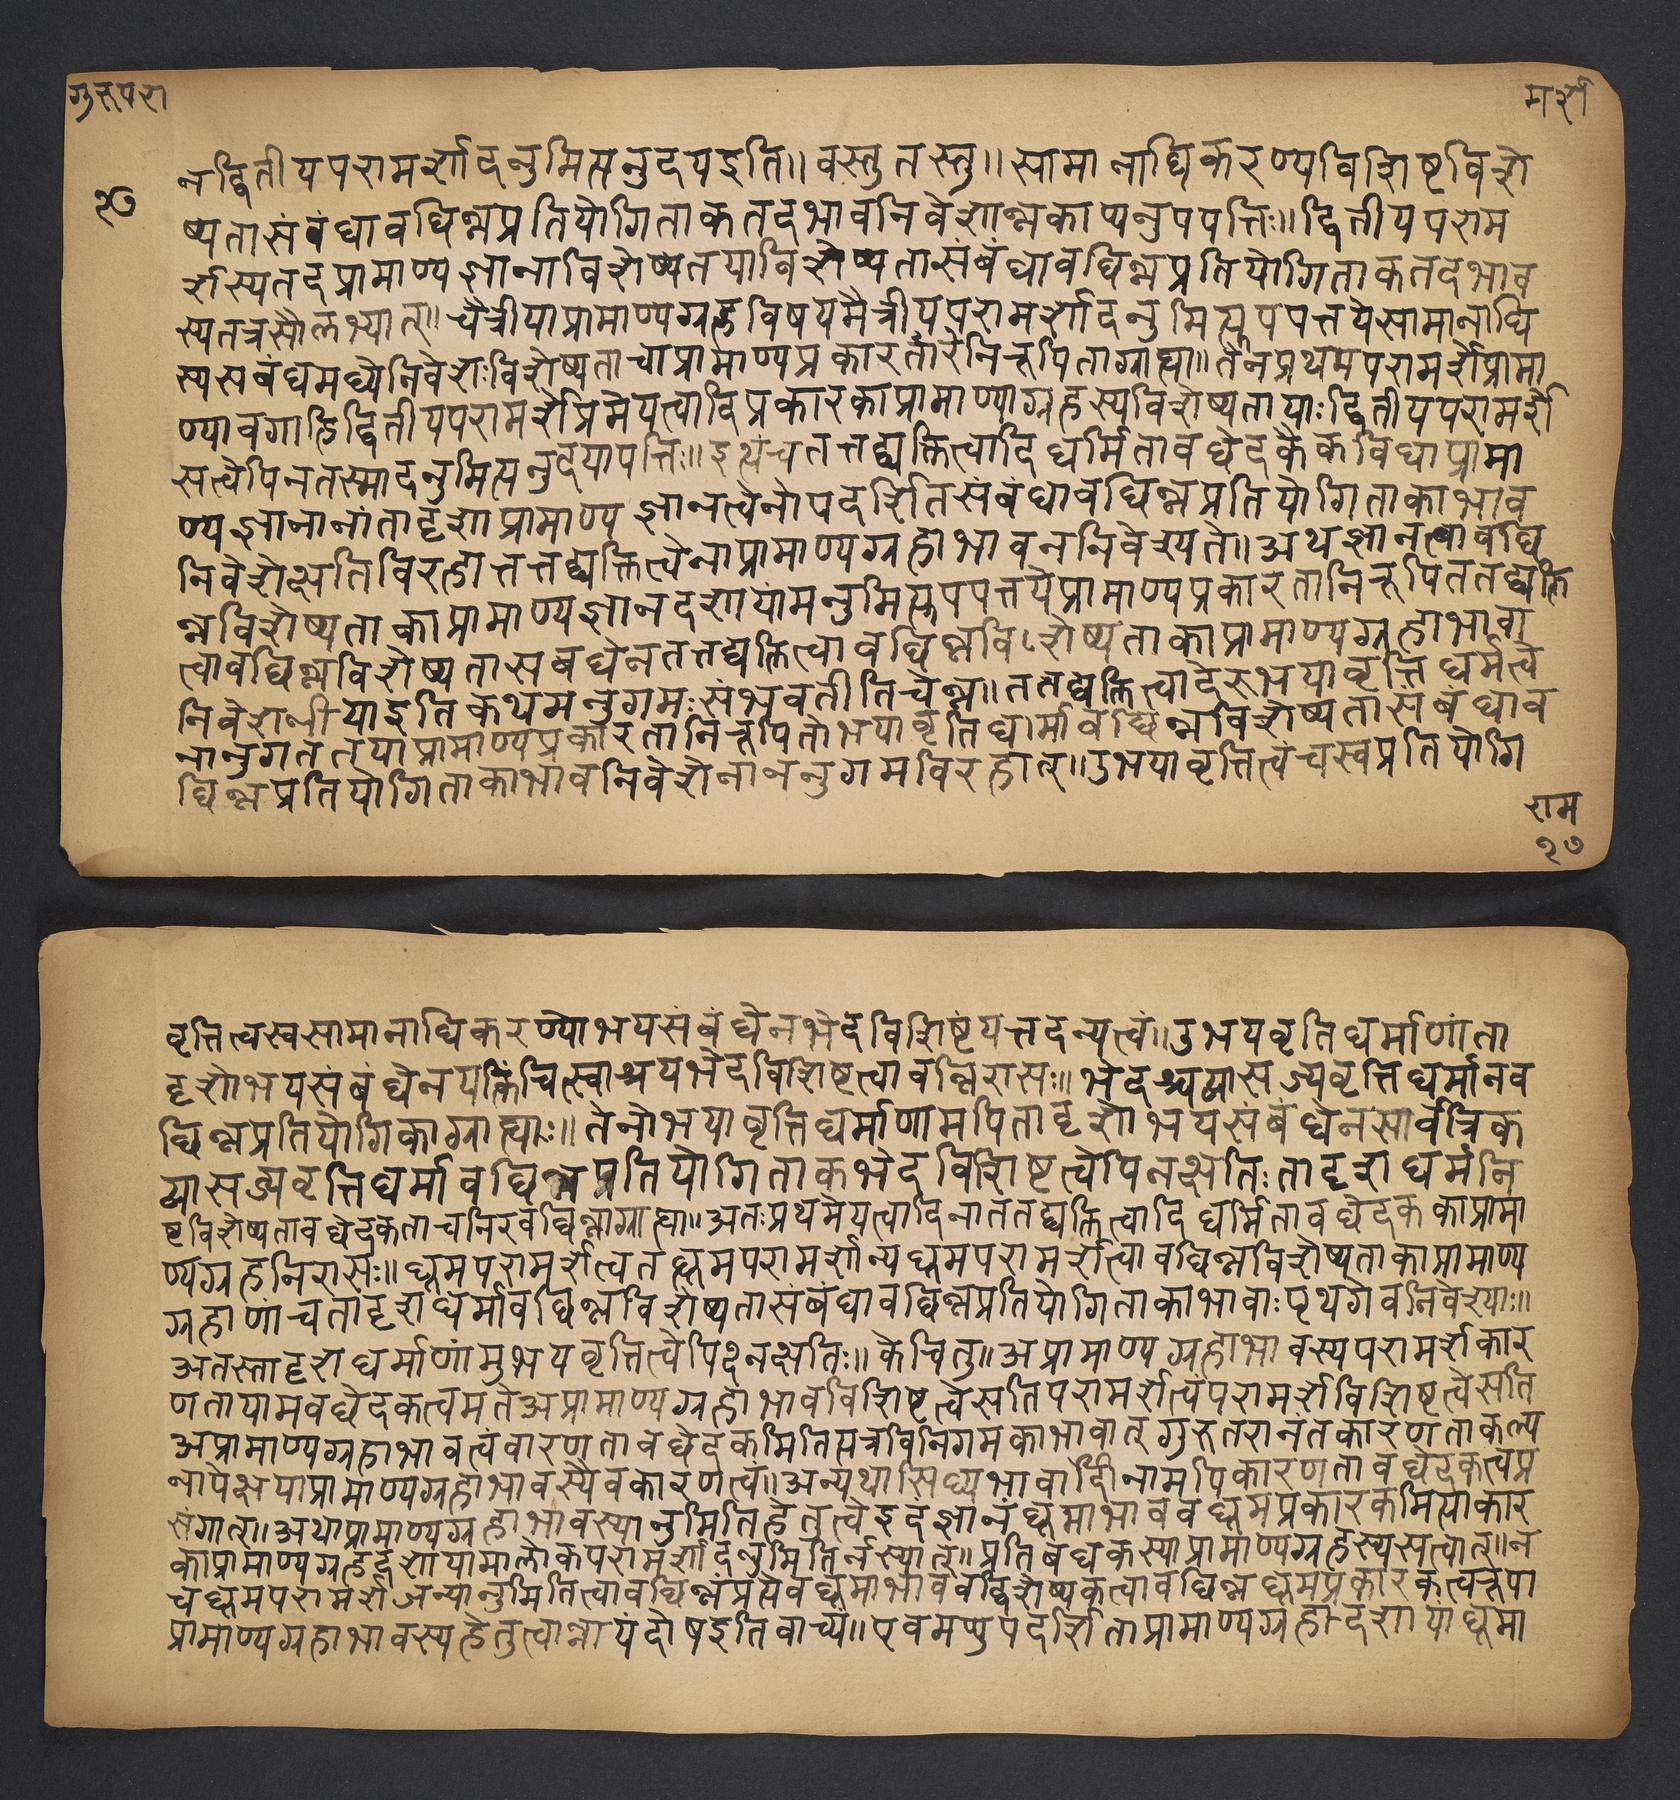 गुरुपरा
मर्शे
नद्वितीयपरामर्शादनुमित्यनुदयइति॥ वस्तुतस्तु॥ सामानाधिकरण्यविशिष्टविशे
२७
ष्यतासंबंधावछिन्नप्रतियोगिताकतदभावनिवेशान्नकाप्यनुपपत्तिः॥ द्वितीयपराम
र्शस्यतदप्रामाण्यज्ञानाविशेष्यतयाविशेष्यतासंबंधावछिन्नप्रतियोगिताकतदभाव
स्यतत्रसौलभ्यात्॥ चैत्रीयाप्रामाण्यग्रहविषयमैत्रीयपरामर्शादनुमित्युपपत्तयेसामानाधि
स्यसबंधमध्येनिवेशःविशेष्यताचाप्रामाण्यप्रकारतांरेनिरूपिताग्राह्या॥ तेनप्रथमपरामर्शेप्रामा
ण्यावगाहिद्वितीयपरामर्शेप्रमेयत्वादिप्रकारकाप्रामाण्याग्रहस्यविशेष्यतायाःद्वितीयपरामर्शे
सत्वेपिनतस्मादनुमित्यनुदयापत्तिः॥ इत्थंचतत्तद्व्यक्तित्वादिधर्मितावछेदकैकविधाप्रामा
ण्यज्ञानानांतादृशाप्रामाण्यज्ञानत्वेनोपदर्शितसंबंधावछिन्नप्रतियोगिताकाभाव
निवेशेक्षतिविरहात्तत्तद्व्यक्तित्वेनाप्रामाण्यग्रहाभावननिवेश्यते॥ अथज्ञानत्वावछि
न्नविशेष्यताकाप्रामाण्यज्ञानदशायामनुमित्युपपत्तयेप्रामाण्यप्रकारतानिरूपिततद्व्यक्ति
त्वावछिन्नविशेष्यतासबंधेनतत्तद्व्यक्तित्वावछिन्नविशेष्यताकाप्रामाण्यग्रहाभावा
निवेशनीयाइतिकथमनुगमःसंभवतीतिचेन्न॥ तत्तद्व्यक्तित्वादेरुभयावृत्तिधर्मत्वे
नानुगततयाप्रामाण्यप्रकारतानिरूपितोभयावृतिधर्मावछिन्नविशेष्यतासंबंधाव
छिन्नप्रतियोगिताकाभावनिवेशेनाननुगमविरहात्॥ उभयावृत्तित्वंचस्वप्रतियोगि
राम
२७
वृत्तित्वस्वसामानाधिकरण्योभयसंबंधेनभेदविशिष्टंयत्तदन्यत्वं॥ उभयवृतिधर्माणांता
दृशोभयसंबंधेनयत्किंचित्स्वाश्रयभेदविशिष्टत्वावन्निरासः॥ भेदश्चव्यासज्यवृत्तिधर्मानव
छिन्नप्रतियोगिकाग्राह्याः॥ तेनोभयावृत्तिधर्माणामपितादृशोभयसंबंधेनसार्वत्रिक
व्यासज्यवृत्तिधर्मावछिन्नप्रतियोगिताकभेदविशिष्टत्वेपिनक्षतिः तादृशधर्मनि
ष्टविशेष्यतावछेदकताचनिरवछिन्नाग्राह्या॥ अतःप्रथमेयत्वादिनाततद्व्यक्तित्वादिधर्मितावछेदककाप्रामा
ण्यग्रहनिरासः॥ धूमपरामर्शत्वतद्धूमपरामर्शान्यधूमपरामर्शत्वावछिन्नविशेष्यताकाप्रामाण्य
ग्रहाणाचतादृशधर्मावछिन्नविशेष्यतासंबंधावछिन्नप्रतियोगिताकाभावाःपृथगेवनिवेश्याः॥
अतस्तादृशधर्माणांमुभयवृत्तित्वेपिदनक्षतिः॥ केचितु॥ अप्रामाण्यग्रहाभावस्यपरामर्शकार
णतायामवछेदकत्वमतेअप्रामाण्यग्रहाभावविशिष्टत्वेसतिपरामर्शत्वंपरामर्शविशिष्टत्वेसति
अप्रामाण्यग्रहाभावत्वंवारणतावछेदकमितिसत्रविनिगमकाभावात्गुरुतरानतकारणताकल्प
नापेक्षयाप्रामाण्यग्रहाभावस्यैवकारणत्वं॥ अन्यथासिध्यभावादीनामपिकारणतावछेदकत्वप्र
संगात्॥ अथाप्रामाण्यग्रहाभावस्यानुमितिहेतुत्वेइदंज्ञानंधूमाभाववधूमप्रकारकमित्याकार
काप्रामाण्यग्रहदशायामालोकपरामर्शादनुमितिर्नस्यात्॥ प्रतिबंधकस्याप्रामाण्यग्रहस्यसत्वात्॥ न
चधूमपरामर्शजन्यानुमितित्वावछिन्नंप्रत्येवधूमाभाववद्विशेष्यकत्वावछिन्नधूमप्रकारकत्वरूपा
प्रामाण्यग्रहाभावस्यहेतुत्वान्नायंदोषइतिवाच्यं॥ एवमप्युपदर्शिताप्रामाण्यग्रहादशायांधूमा